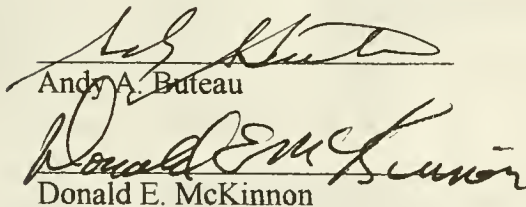 Andy A. Buteau
Donald E McKinnon
Donald E. McKinnon